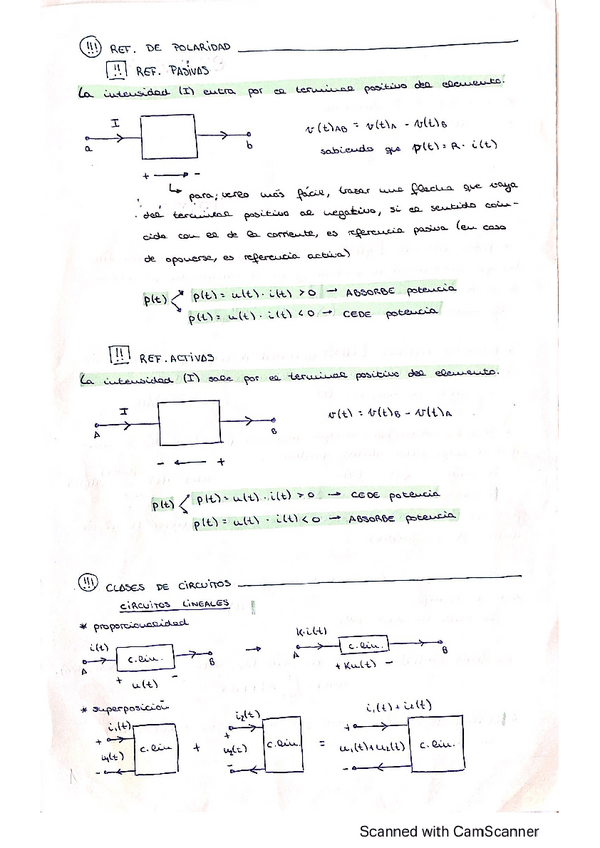 !!! REF. DE POLARIDAD
!! REF. PASIVAS
La intensidad (I) entra por el terminal positivo del elemento.
I
a b
+ → -
v(t)AB = v(t)A - v(t)B
sabiendo que p(t) = R · i(t)
↳ para verlo más fácil, trazar una flecha que vaya
del terminal positivo al negativo, si el sentido coin-
cide con el de la corriente, es referencia pasiva (en caso
de oponerse, es referencia activa)
p(t) p(t) = u(t) · i(t) > 0 → ABSORBE potencia
p(t) = u(t) · i(t) < 0 → CEDE potencia
!! REF. ACTIVAS
La intensidad (I) sale por el terminal positivo del elemento.
I
A B
- ← +
v(t) = v(t)B - v(t)A
p(t) p(t) = u(t) · i(t) > 0 → CEDE potencia
p(t) = u(t) · i(t) < 0 → ABSORBE potencia
!!! CLASES DE CIRCUITOS
CIRCUITOS LINEALES
* proporcionalidad
i(t) K·i(t)
A c.lin. B → A c.lin. B
+ u(t) - + Ku(t) -
* superposición
i1(t) i2(t) i1(t) + i2(t)
+ + +
u1(t) c.lin + u2(t) c.lin. = u1(t)+u2(t) c.lin.
- - -
Scanned with CamScanner